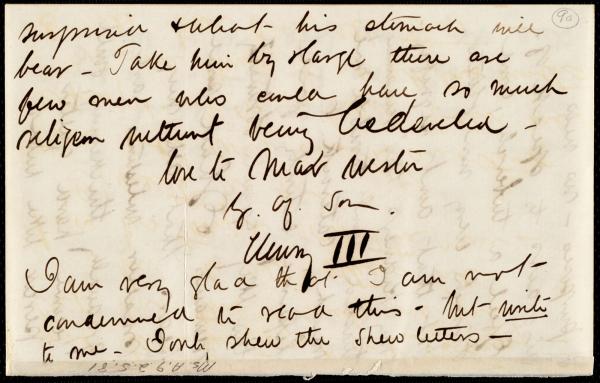 9a
suspicion & what his stomach will
bear - Take him by & large there are
few men who could have so much
religion without being bedeviled -
love to Mad Weston
Yr. af. Son.
Henry III
I am very glad that I am not
condemned to read this - but write
to me - I only shew the shew letters -
Ms. A.9.2.5.81